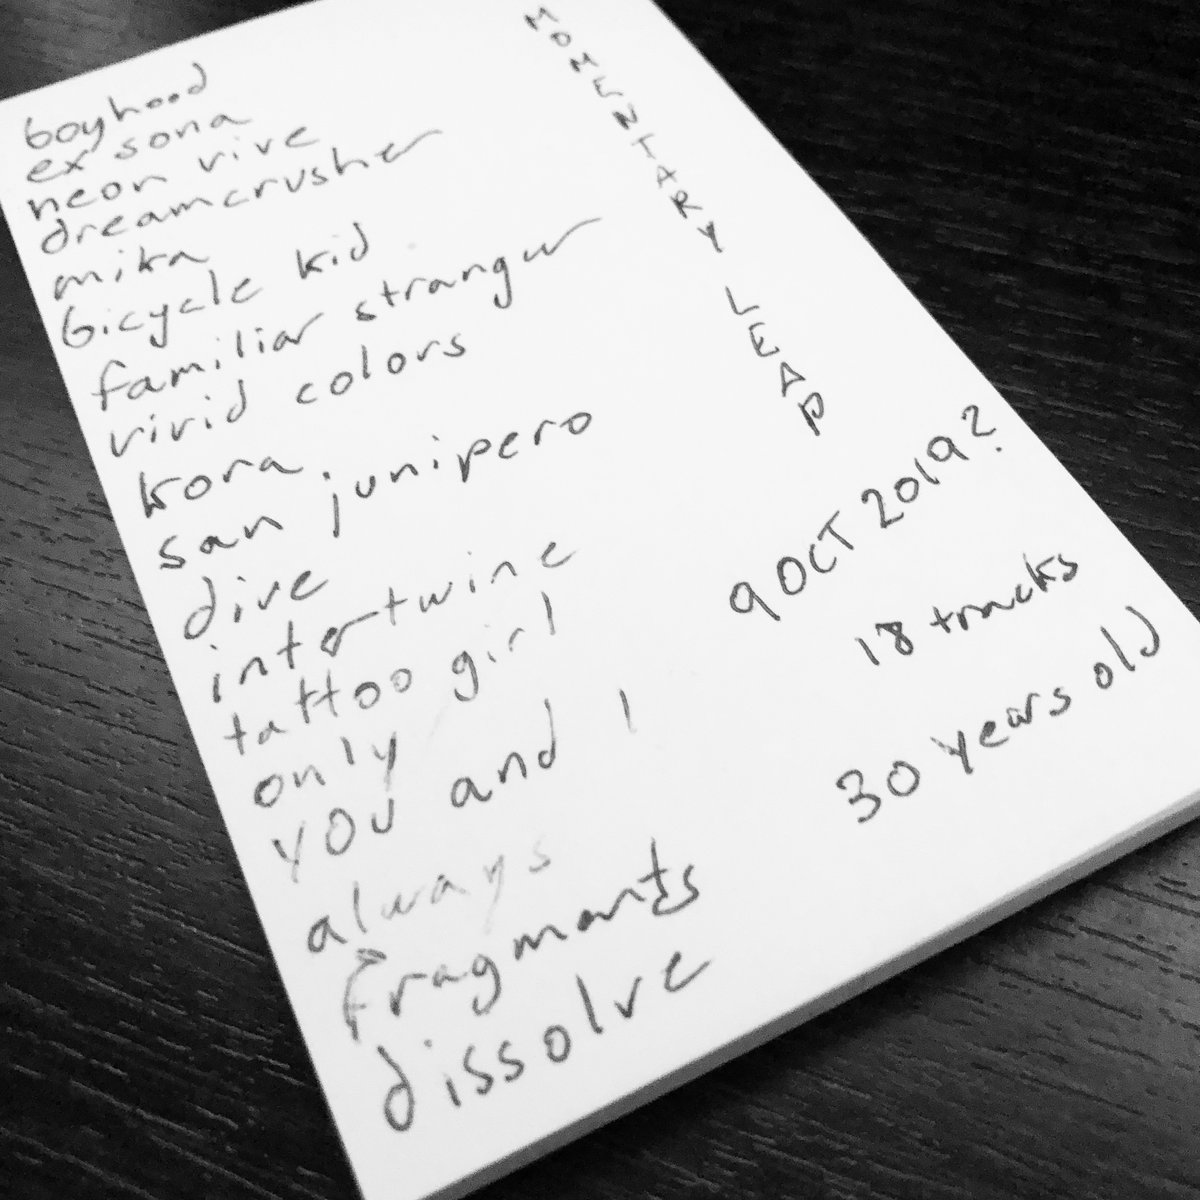 boyhood
ex sona
neon vive
dreamcrusher
mika
bicycle kid
familiar stranger
vivid colors
kora
san junipero
dive
intertwine
tattoo girl
only
you and I
always
fragments
dissolve
MOMENTARY LEAP
9 OCT 2019?
18 tracks
30 years old